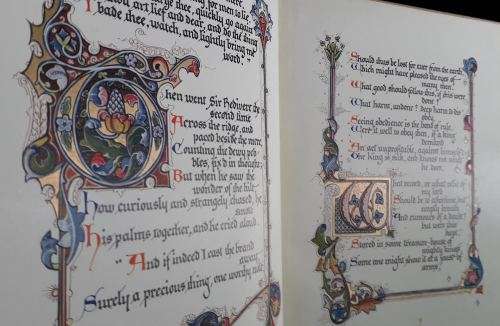 for men to lie
Thou art lief and dear, and do the thing
I bade thee, watch, and lightly bring me
word."
Then went Sir Bedivere the
second time
Across the ridge, and
paced beside the mere,
Counting the dewy peb-
bles, fix'd in thought;
But when he saw the
wonder of the hilt,
How curiously and strangely chased, he
smote
His palms together, and he cried aloud.
"And if indeed I cast the brand
away,
Surely a precious thing, one worthy note,
Should thus be lost for ever from the earth,
Which might have pleased the eyes of
many men.
What good should follow this, if this were
done?
What harm, undone? deep harm to dis-
obey,
Seeing obedience is the bond of rule.
Were it well to obey then, if a king
demand
An act unprofitable, against himself?
The King is sick, and knows not what
he does.
What record, or what relic of
my lord
Should be to aftertime, but
empty breath
And rumours of a doubt?
but were this
kept,
Stored in some treasure-house of
mighty kings,
Some one might show it at a joust of
arms,